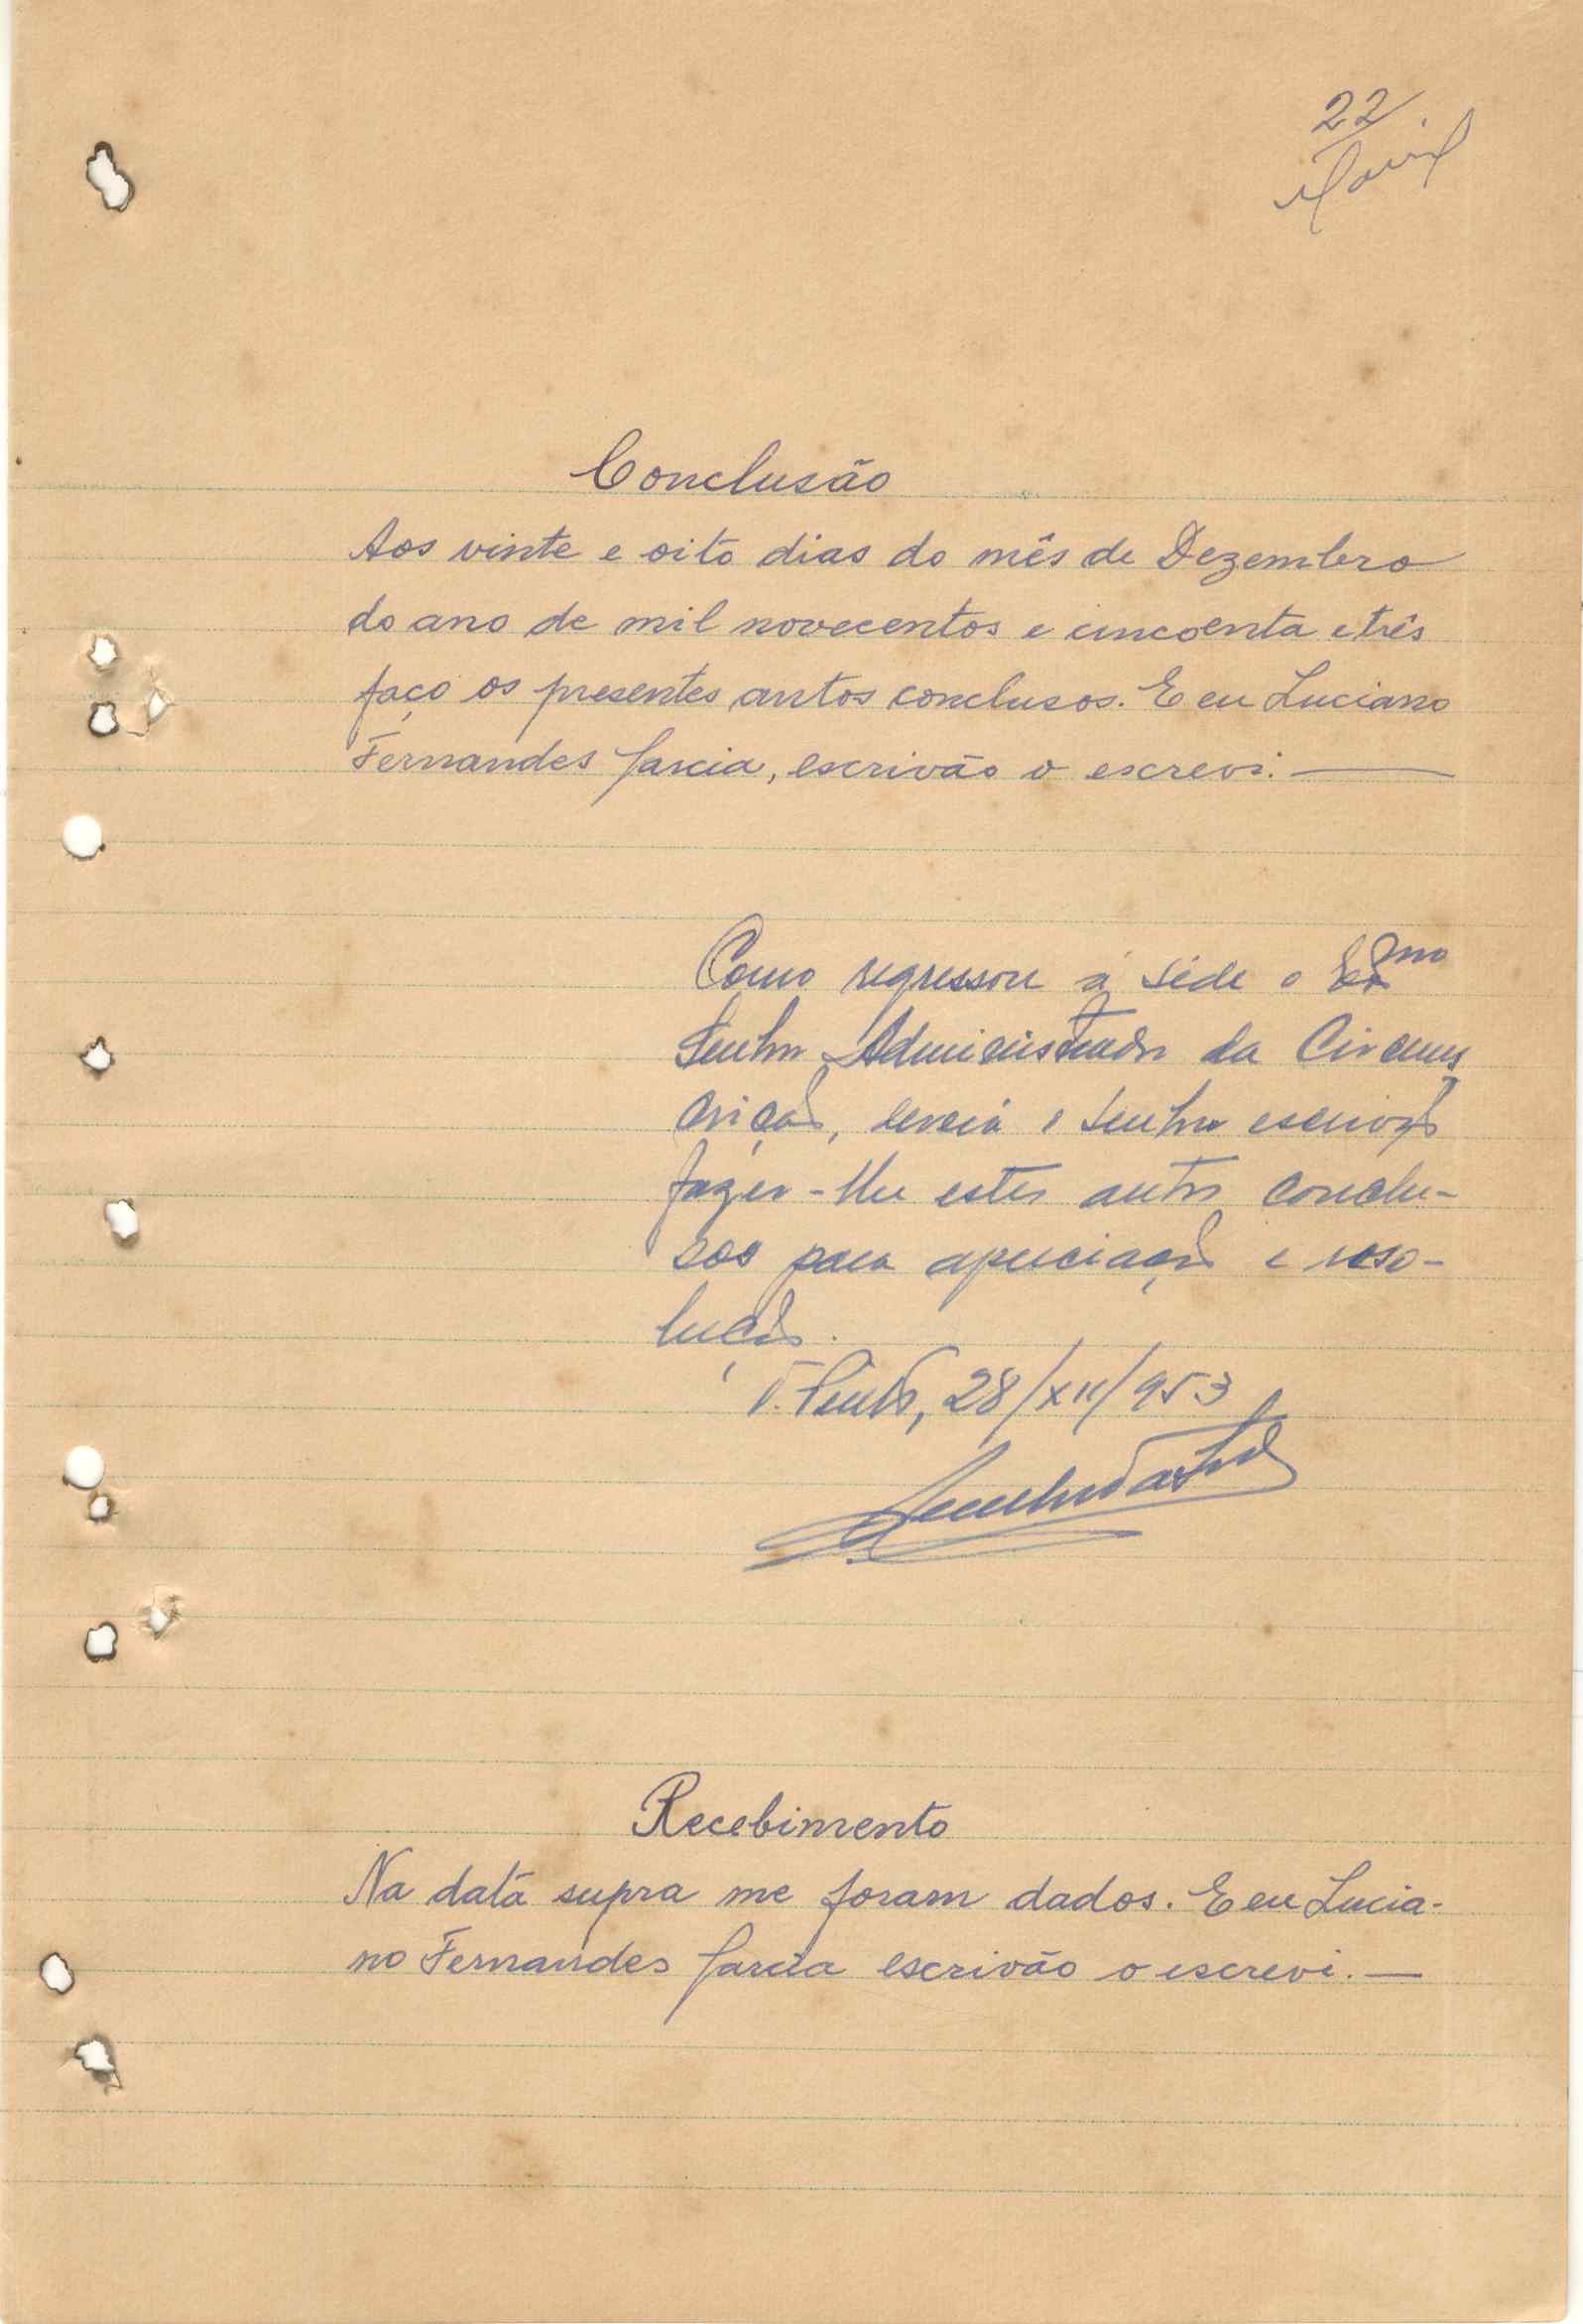 22
Conclusão
Aos vinte e oito dias do mês de Dezembro
do ano de mil novecentos e cincoenta e três
faço os presentes autos conclusos. E eu Luciano
Fernandes Garcia, escrivão o escrevi.
Como regressou à séde o Exmo
Senhor Administrador da Circuns
crição, deverá o Senhor escrivão
fazer-lhe estes autos conclu-
sos para apreciação e reso-
lução.
28/XII/953
Recebimento
Na data supra me foram dados. E eu Lucia-
no Fernandes Garcia escrivão o escrevi.